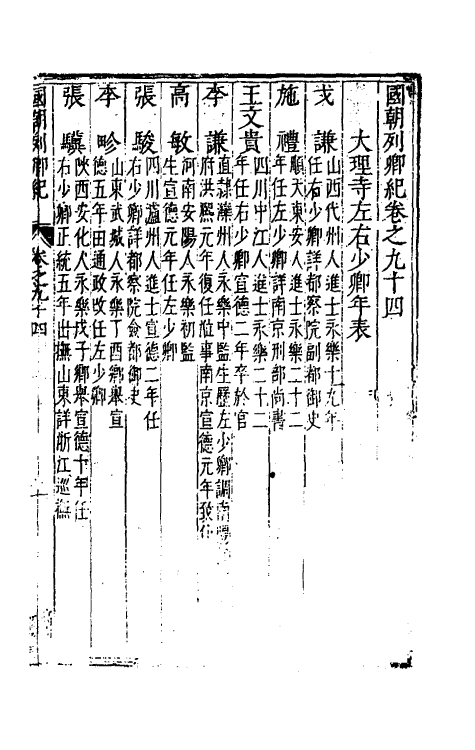 國朝列卿紀卷之九十四
大理寺左右少卿年表
戈謙 山西代州人進士永樂十九年
任右少卿詳都察院副都御史
施禮 順天東安人進士永樂二十二
年任左少卿詳南京刑部尚書
王文貴 四川中江人進士永樂二十二
年任右少卿宣德二年卒於官
李謙 直隸灤州人永樂中監生歷左少卿調南
府洪熙元年復任敀事南京宣德元年致仕
高敏 河南安陽人永樂初監
生宣德元年任左少卿
張駿 四川瀘州人進士宣德二年任
右少卿詳都察院僉都御史
李畛 山東武城人永樂丁酉鄉舉宣
德五年由通政改任左少卿
張驥 陝西安化人永樂戊子鄉舉宣德十年任
右少卿正統五年出撫山東詳浙江巡撫
國朝列卿紀 卷之九十四